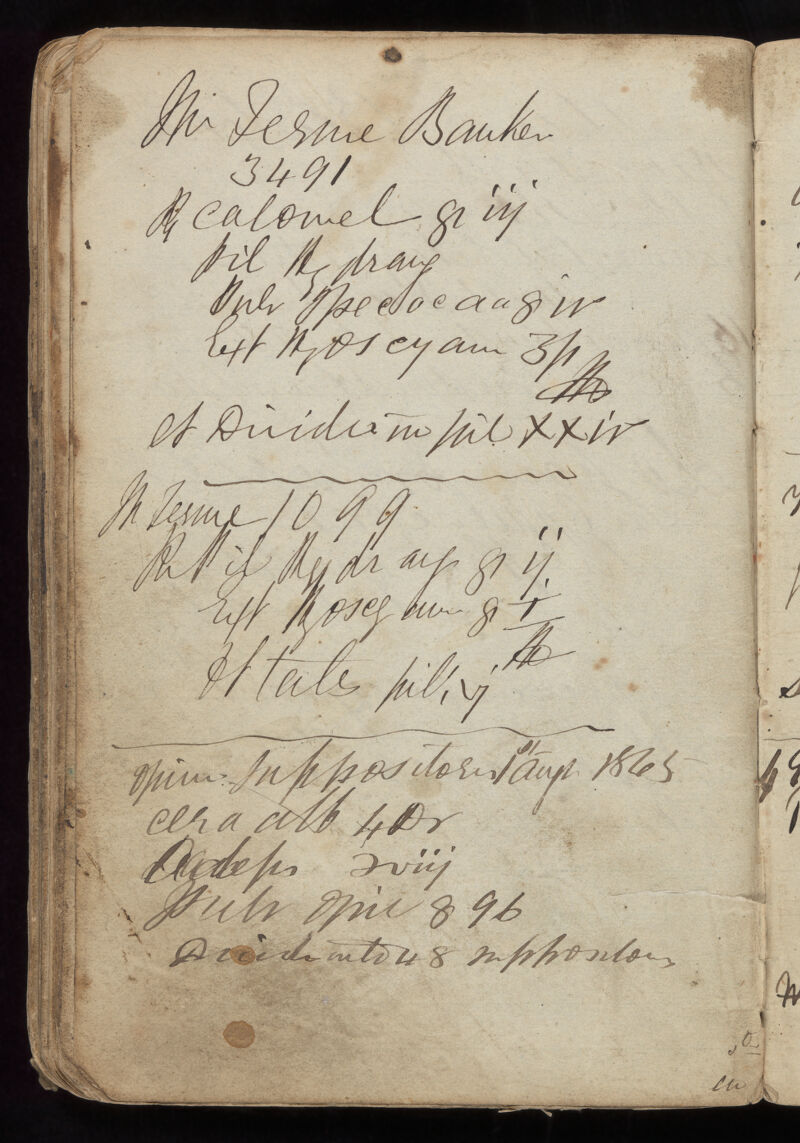 Mr Jerme Banker
3491
℞ Calomel gr iij
Pil Hydrarg
Pulv Ipecoc aa gr iv
Ext Hyoscyam ʒſs
et Divide in pil XXiv
Mr Jerme 1099
℞ Pil Hydrarg gr ij
Ext Hyoscyam gr i
M
ft tales pil vj
opium Suppositores 1st aug 1865
cera alb 4 Dr
Adeps ʒviij
Pulv opii g 96
Divide into 48 suppositores